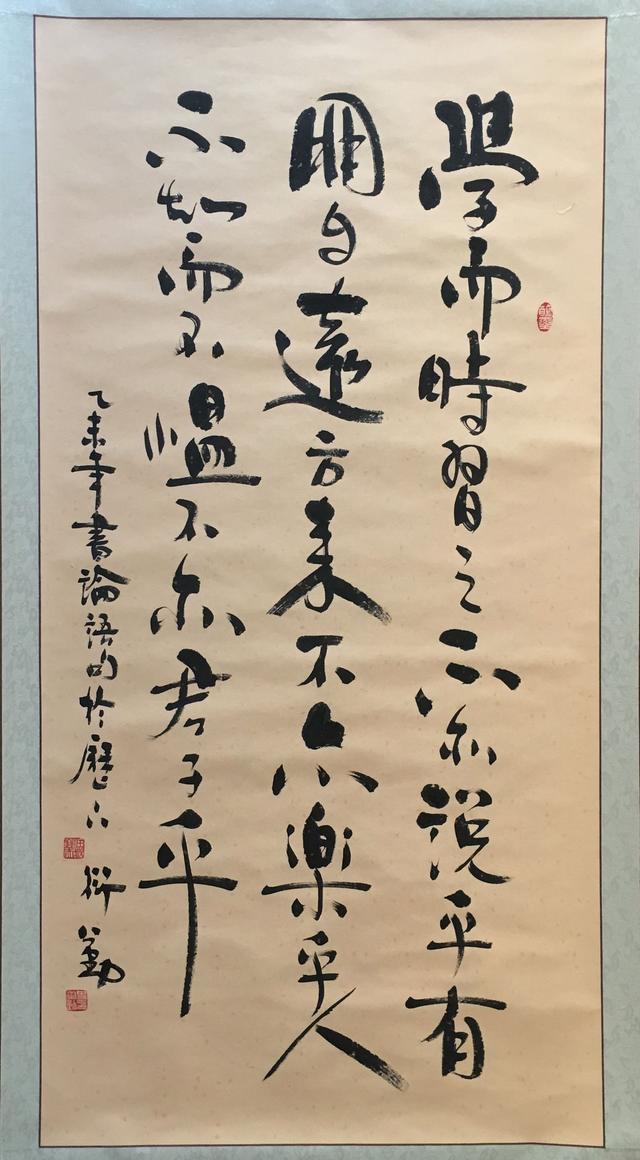 學而時習之不亦說乎有
朋自遠方來不亦樂乎人
不知而不慍不亦君子乎
乙未年書論語句於歷下